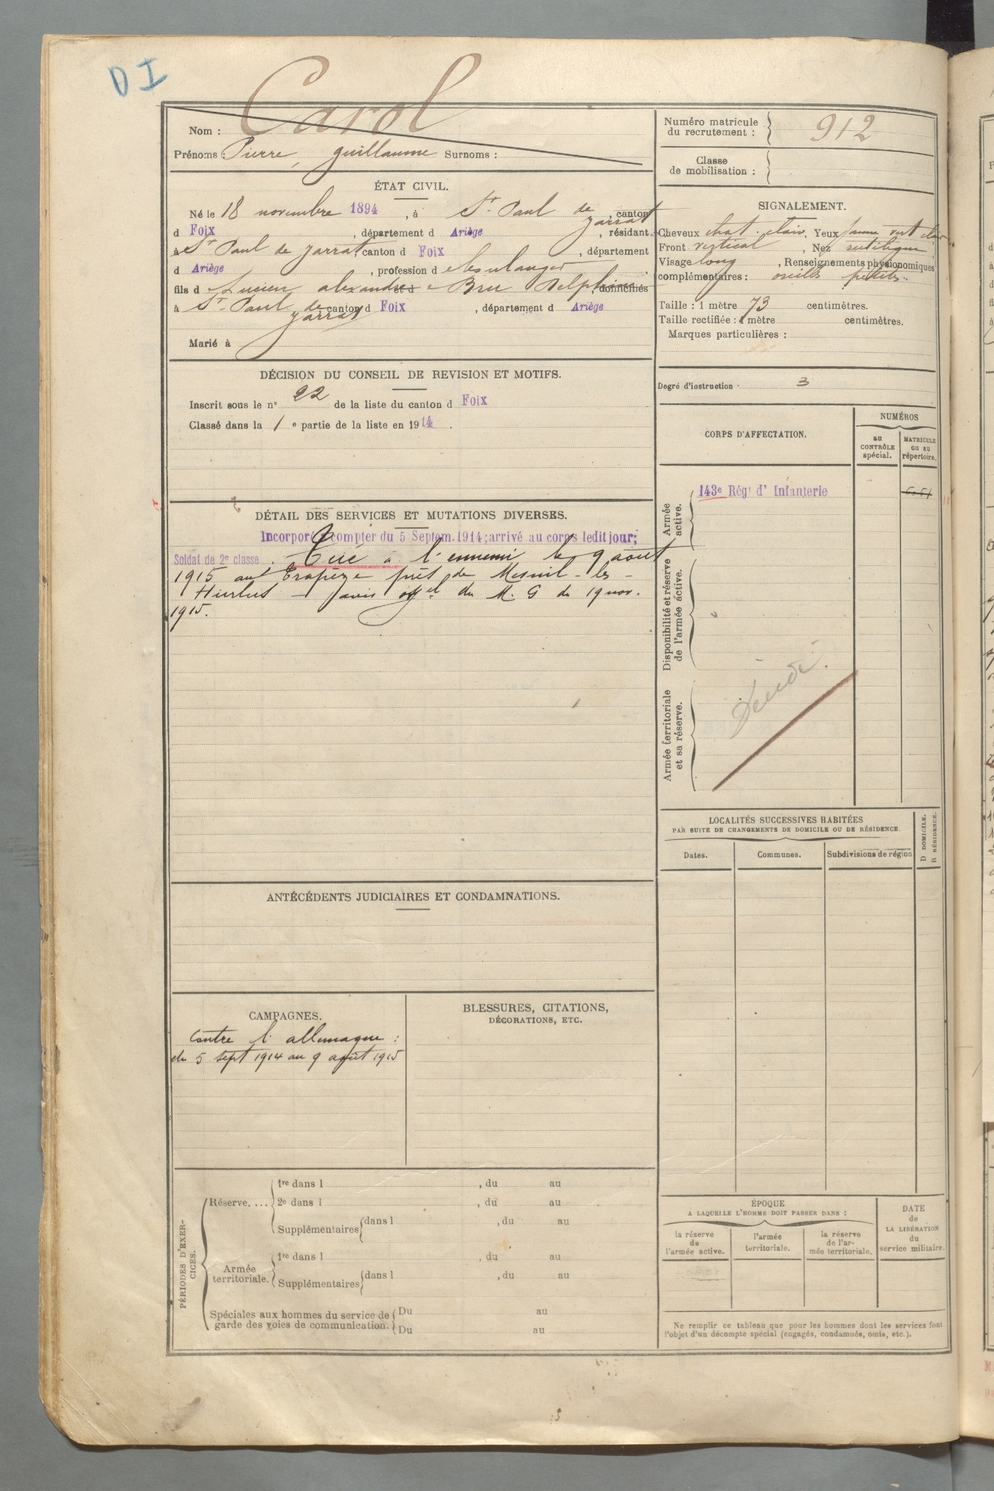 DI
Carol
Nom :
Prénoms : Pierre, Guillaume Surnoms :
Numéro matricule
du recrutement :
912
Classe
de mobilisation :
ÉTAT CIVIL.
Né le 18 novembre 1894, à St. Paul de Jarrat, canton
d Foix, département d Ariège, résidant
à St Paul de Jarrat, canton d Foix, département
d Ariège, profession d boulanger
fils d Lucien alexandre et d Bru Delphine, domiciliés
à St. Paul de Jarrat canton d Foix, département d Ariège
Marié à
SIGNALEMENT.
Cheveux chat. clairs. Yeux jaune vert clair
Front vertical, Nez rectiligne
Visage long, Renseignements physionomiques
complémentaires : oreilles petites.
Taille : 1 mètre 73 centimètres.
Taille rectifiée : 1 mètre centimètres.
Marques particulières :
Degré d'instruction . 3
DÉCISION DU CONSEIL DE REVISION ET MOTIFS.
Inscrit sous le n° 22 de la liste du canton d Foix
Classé dans la 1e partie de la liste en 1914.
DÉTAIL DES SERVICES ET MUTATIONS DIVERSES.
Incorporé à compter du 5 Septem. 1914; arrivé au corps ledit jour;
Soldat de 2e classe. Tué à l'ennemi le 9 aout
1915 au Trapèze près de Mesnil-les-
Hurlus - avis offel du M. G du 19 nov.
1915.
CORPS D'AFFECTATION.
NUMÉROS
AU
CONTRÔLE
spécial.
MATRICULE
OU AU
répertoire.
Armée
active.
143e Régt d' Infanterie
Disponibilité et réserve
de l'armée active.
Armée territoriale
et sa réserve.
Décédé.
LOCALITÉS SUCCESSIVES HABITÉES
PAR SUITE DE CHANGEMENTS DE DOMICILE OU DE RÉSIDENCE.
Dates.
Communes.
Subdivisions de région
D DOMICILE.
R RÉSIDENCE.
ANTÉCÉDENTS JUDICIAIRES ET CONDAMNATIONS.
CAMPAGNES.
Contre l'allemagne :
du 5 sept 1914 au 9 août 1915
BLESSURES, CITATIONS,
DÉCORATIONS, ETC.
PÉRIODES D'EXER-
CICES.
Réserve....
1re dans l , du au
2e dans l , du au
Supplémentaires dans l , du au
Armée
territoriale.
1re dans l , du au
Supplémentaires dans l , du au
Spéciales aux hommes du service de
garde des voies de communication.
Du au
Du au
ÉPOQUE
A LAQUELLE L'HOMME DOIT PASSER DANS :
la réserve
de
l'armée active.
l'armée
territoriale.
la réserve
de l'ar-
mée territoriale.
DATE
de
LA LIBÉRATION
du
service militaire.
Ne remplir ce tableau que pour les hommes dont les services font
l'objet d'un décompte spécial (engagés, condamnés, omis, etc.).